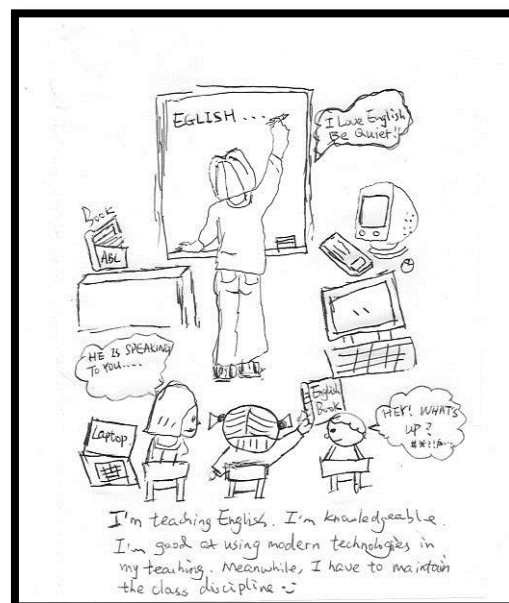 EGLISH ...
I Love English
Be Quiet!!
Book
ABC
HE IS SPEAKING
TO YOU....
Laptop.
English
Book
HEY! WHATS
UP?
#※?!/%...
I'm teaching English. I'm knowledgeable.
I'm good at using modern technologies in
my teaching. Meanwhile, I have to maintain
the class discipline